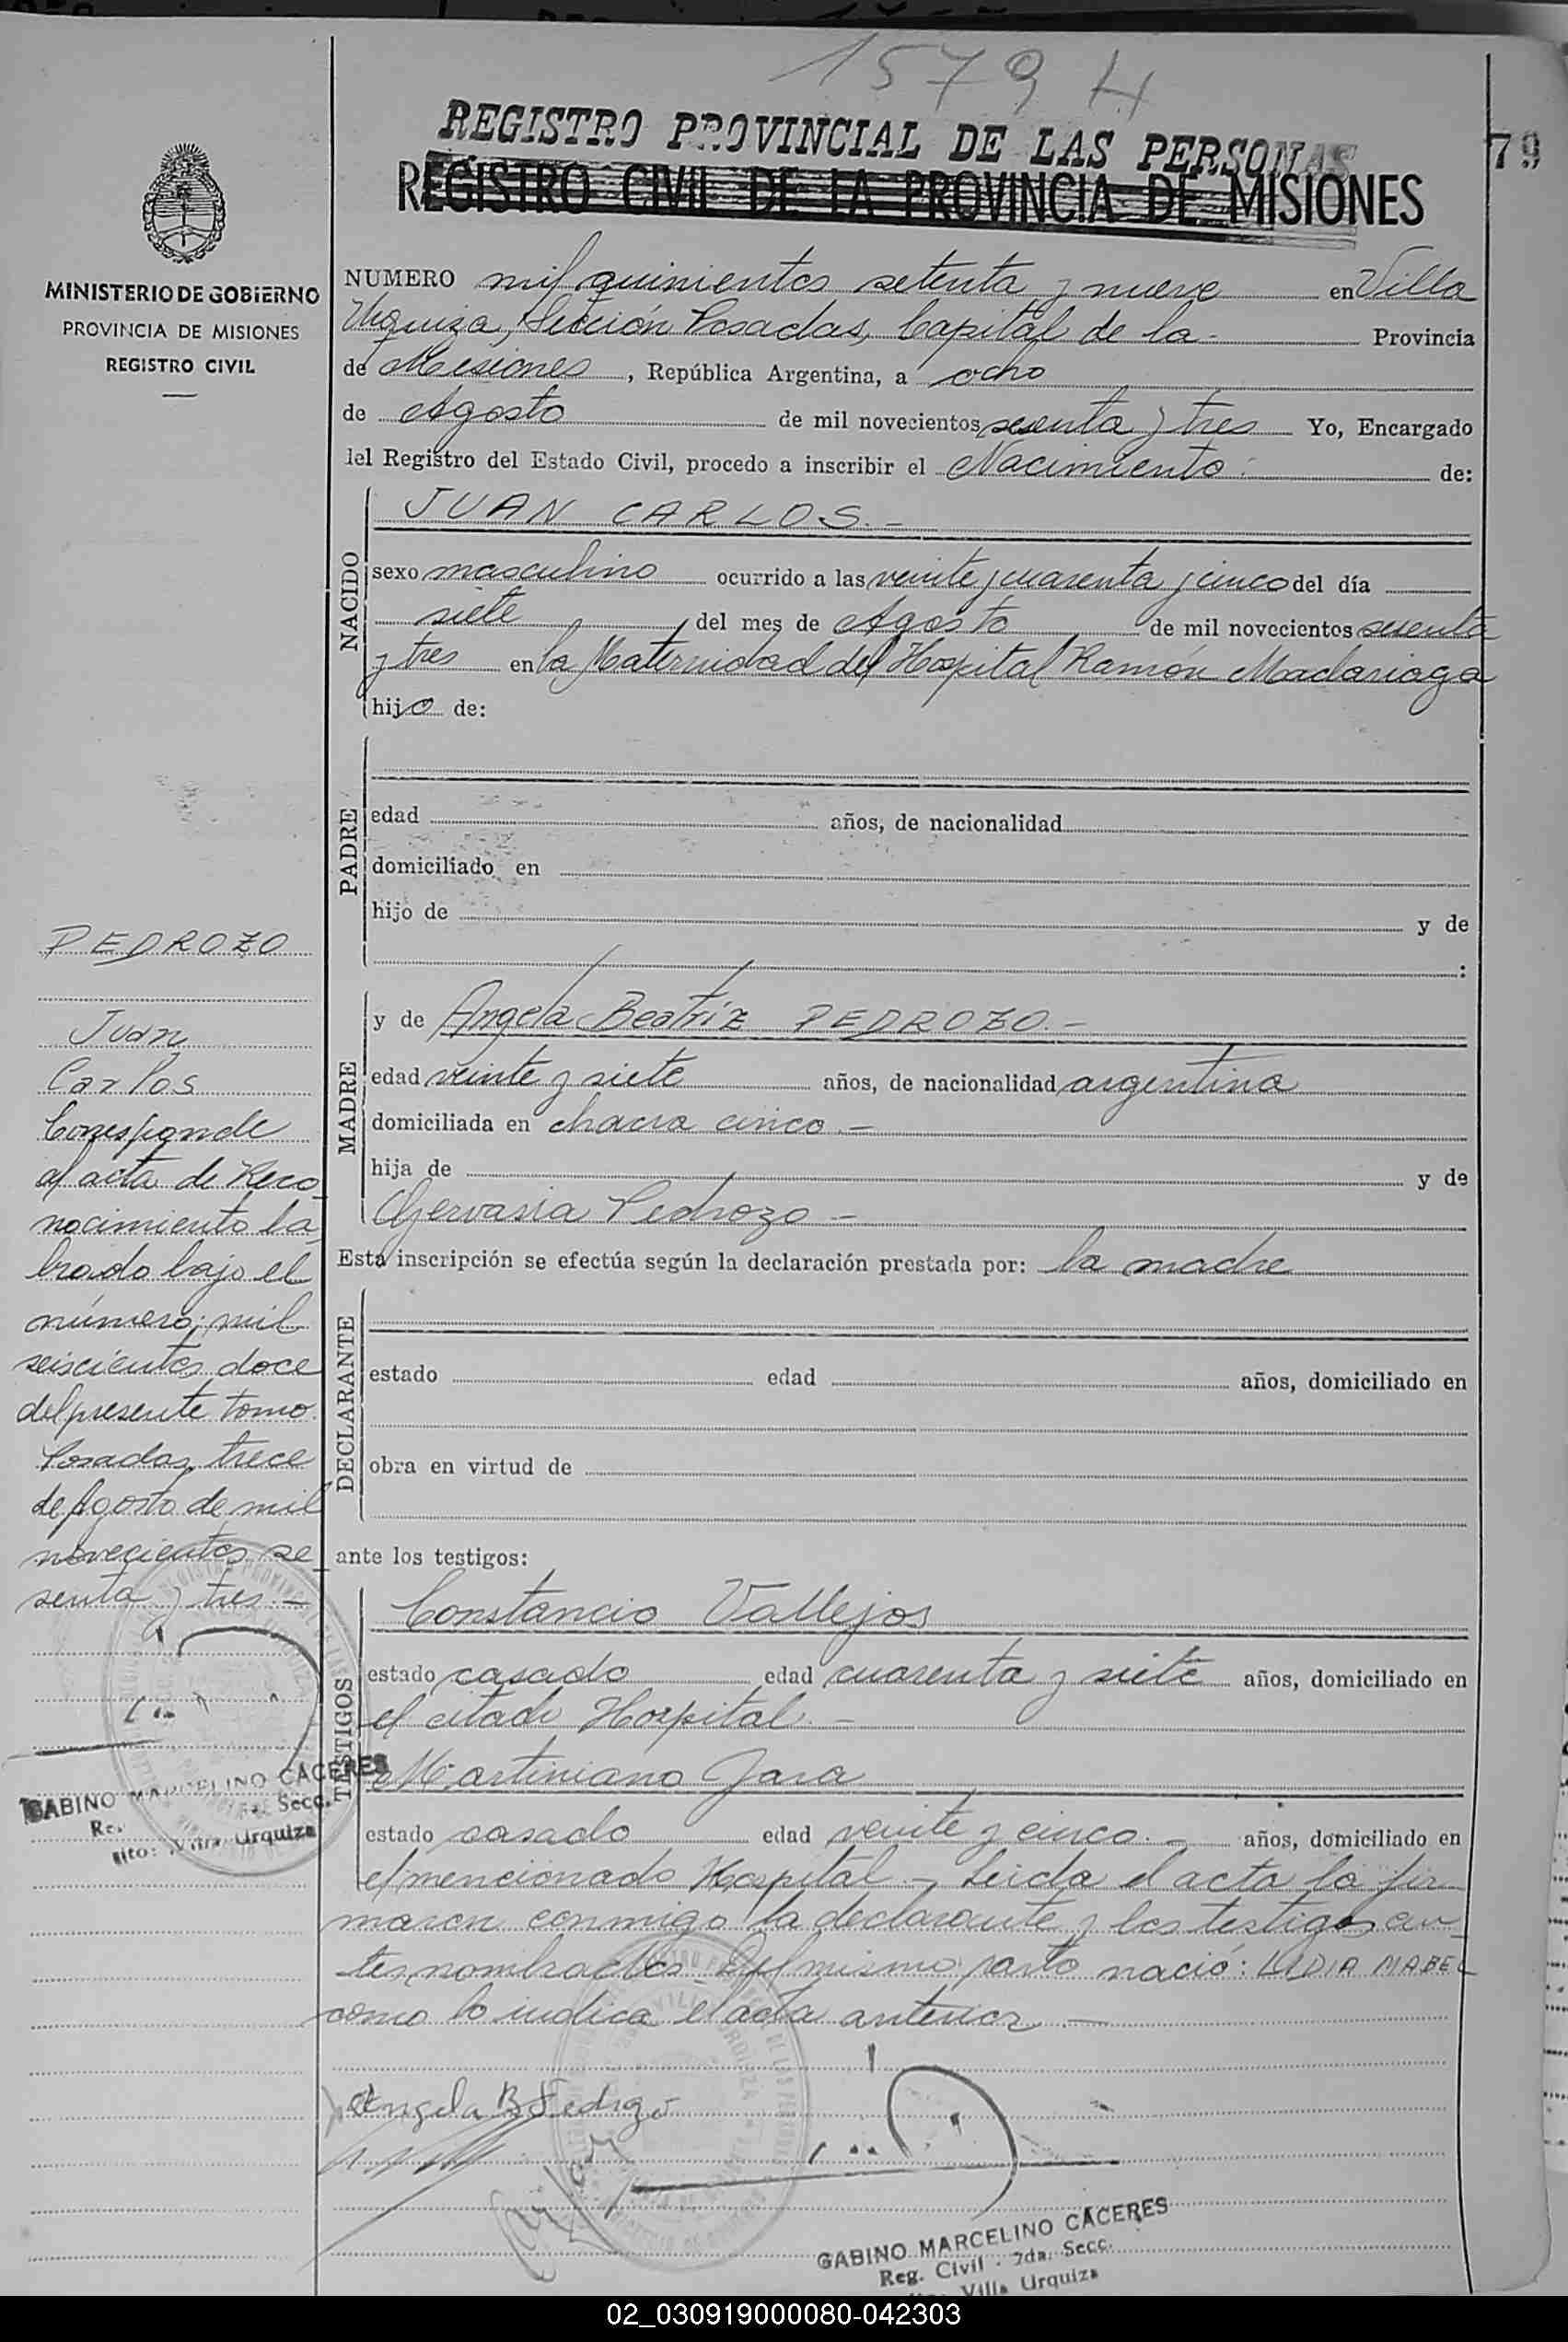 1579 H
REGISTRO PROVINCIAL DE LAS PERSONAS
79
REGISTRO CIVIL DE LA PROVINCIA DE MISIONES
MINISTERIO DE GOBIERNO
PROVINCIA DE MISIONES
REGISTRO CIVIL
NUMERO mil quinientos setenta y nueve en Villa
Urquiza, Sección Posadas, Capital de la Provincia
de Misiones, República Argentina, a ocho
de Agosto de mil novecientos sesenta y tres Yo, Encargado
del Registro del Estado Civil, procedo a inscribir el Nacimiento de:
NACIDO
JUAN CARLOS.-
sexo masculino ocurrido a las veinte y cuarenta y cinco del día
siete del mes de Agosto de mil novecientos sesenta
y tres en la Maternidad del Hospital Ramón Madariaga
hijo de:
PADRE
edad años, de nacionalidad
domiciliado en
hijo de y de
:
MADRE
y de Angela Beatriz PEDROZO.-
edad veinte y siete años, de nacionalidad argentina
domiciliada en chacra cinco.-
hija de y de
Gervasia Pedrozo -
Esta inscripción se efectúa según la declaración prestada por: la madre
DECLARANTE
estado edad años, domiciliado en
obra en virtud de
ante los testigos:
TESTIGOS
Constancio Vallejos
estado casado edad cuarenta y siete años, domiciliado en
el citado Hospital.-
Martiniano Jara
estado casado edad veinte y cinco.- años, domiciliado en
el mencionado Hospital.- Leida el acta la fir-
maron conmigo la declarante y los testigos an-
tes nombrados. Del mismo parto nació: LIDIA MABEL
como lo indica el acta anterior.-
Angela B Pedrozo
GABINO MARCELINO CACERES
Reg. Civil - 2da. Secc.
Villa Urquiza
PEDROZO
Juan
Carlos
Corresponde
al acta de Reco-
nocimiento la-
brado bajo el
número: mil
seiscientos doce
del presente tomo.
Posadas, trece
de Agosto de mil
novecientos se-
senta y tres.-
GABINO MARCELINO CACERES
Secc.
Villa Urquiza
02_030919000080-042303